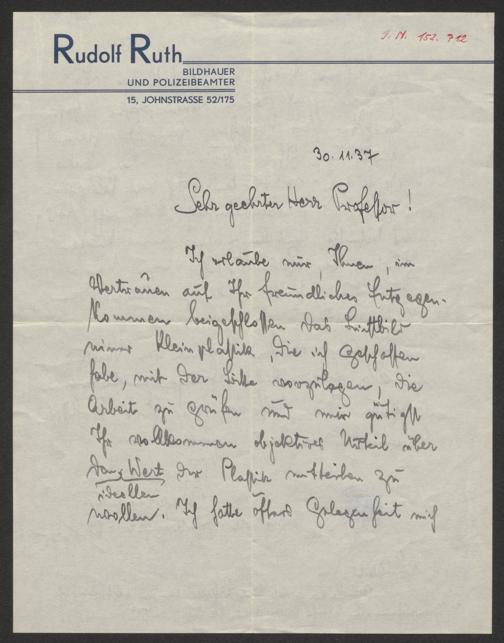 J. N. 152.712
Rudolf Ruth
BILDHAUER
UND POLIZEIBEAMTER
15, JOHNSTRASSE 52/175
30.11.37
Sehr geehrter Herr Professor!
Ich erlaube mir, Ihnen, im
Vertrauen auf Ihr freundliches Entgegen-
kommen beigeschlossen das Lichtbild
einer Kleinplastik, die ich geschaffen
habe, mit der Bitte vorzulegen, die
Arbeit zu prüfen und mir gütigst
Ihr vollkommen objektives Urteil über
den Wert der Plastik mitteilen zu
ideellen
wollen. Ich hatte öfters Gelegenheit mich